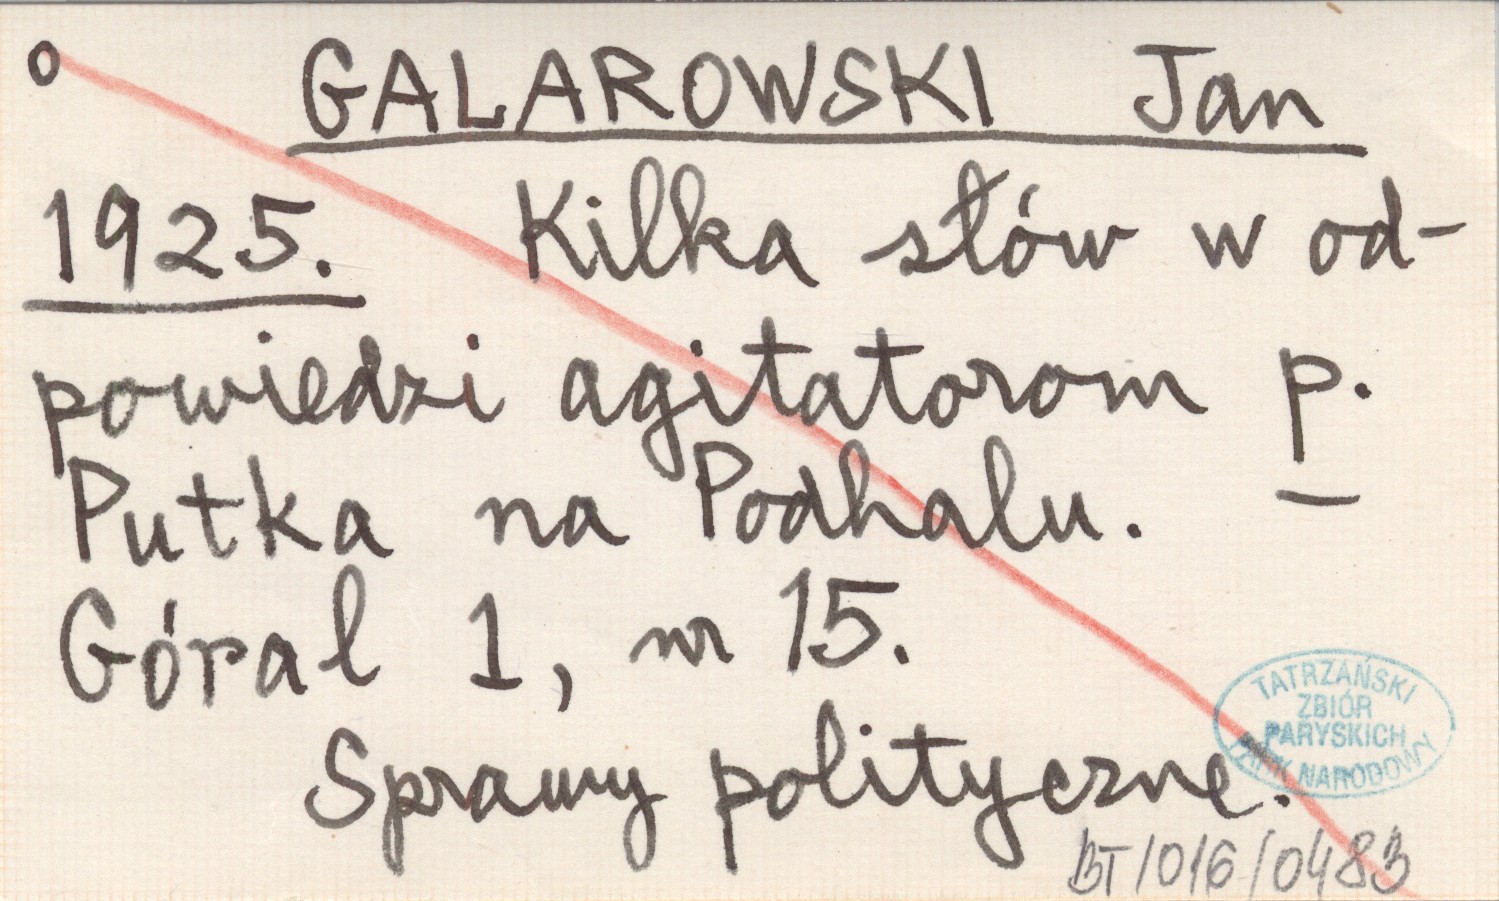 o GALAROWSKI Jan
1925. Kilka słów w od-
powiedzi agitatorom p.
Putka na Podhalu. –
Góral 1, nr 15.
Sprawy polityczne.
TATRZAŃSKI
ZBIÓR
PARYSKICH
PARK NARODOWY
BT/016/0483